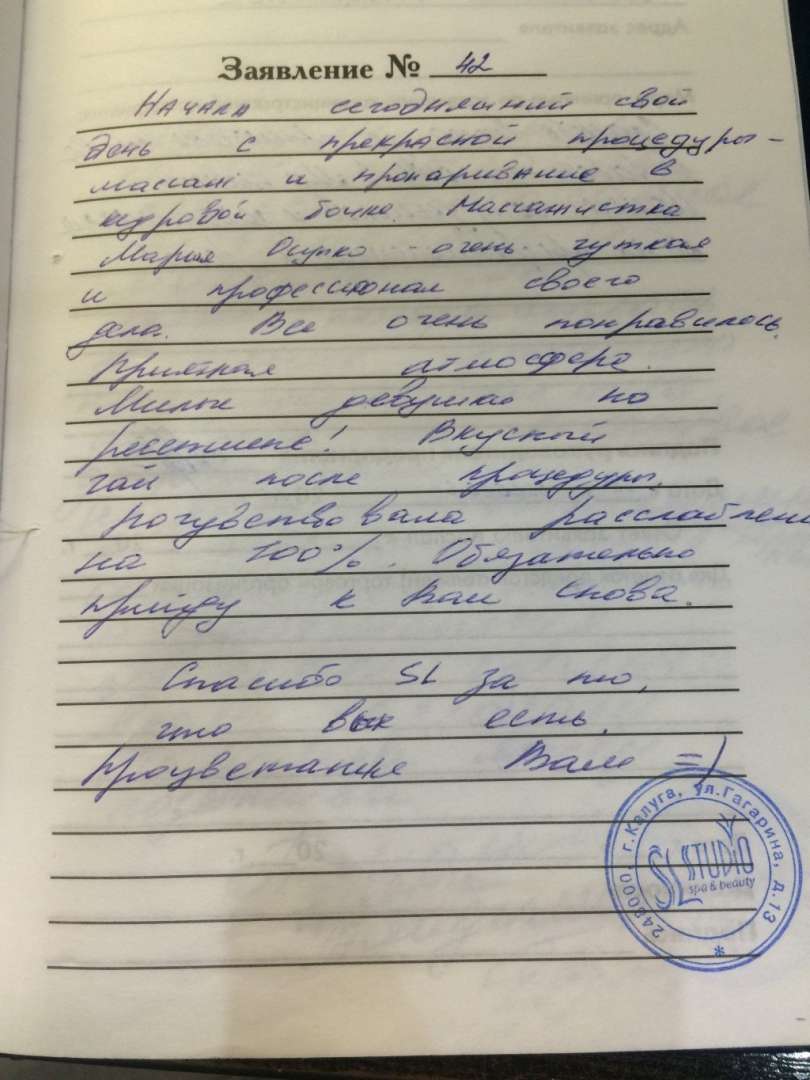 Заявление № 42
Начала сегодняшний свой
день с прекрасной процедуры -
массаж и пропаривание в
кедровой бочке. Массажистка
Мария - очень чуткая
и профессионал своего
дела. Все очень понравилось.
Приятная атмосфера.
Милые девушки на
ресепшене! Вкусный
чай после процедуры,
почувствовала расслабление
на 100%. Обязательно
прийду к Вам снова.
Спасибо SL за то,
что вы есть.
Процветания Вам =)
248000, г.Калуга, ул.Гагарина, д.13 *
SL STUDIO
spa & beauty